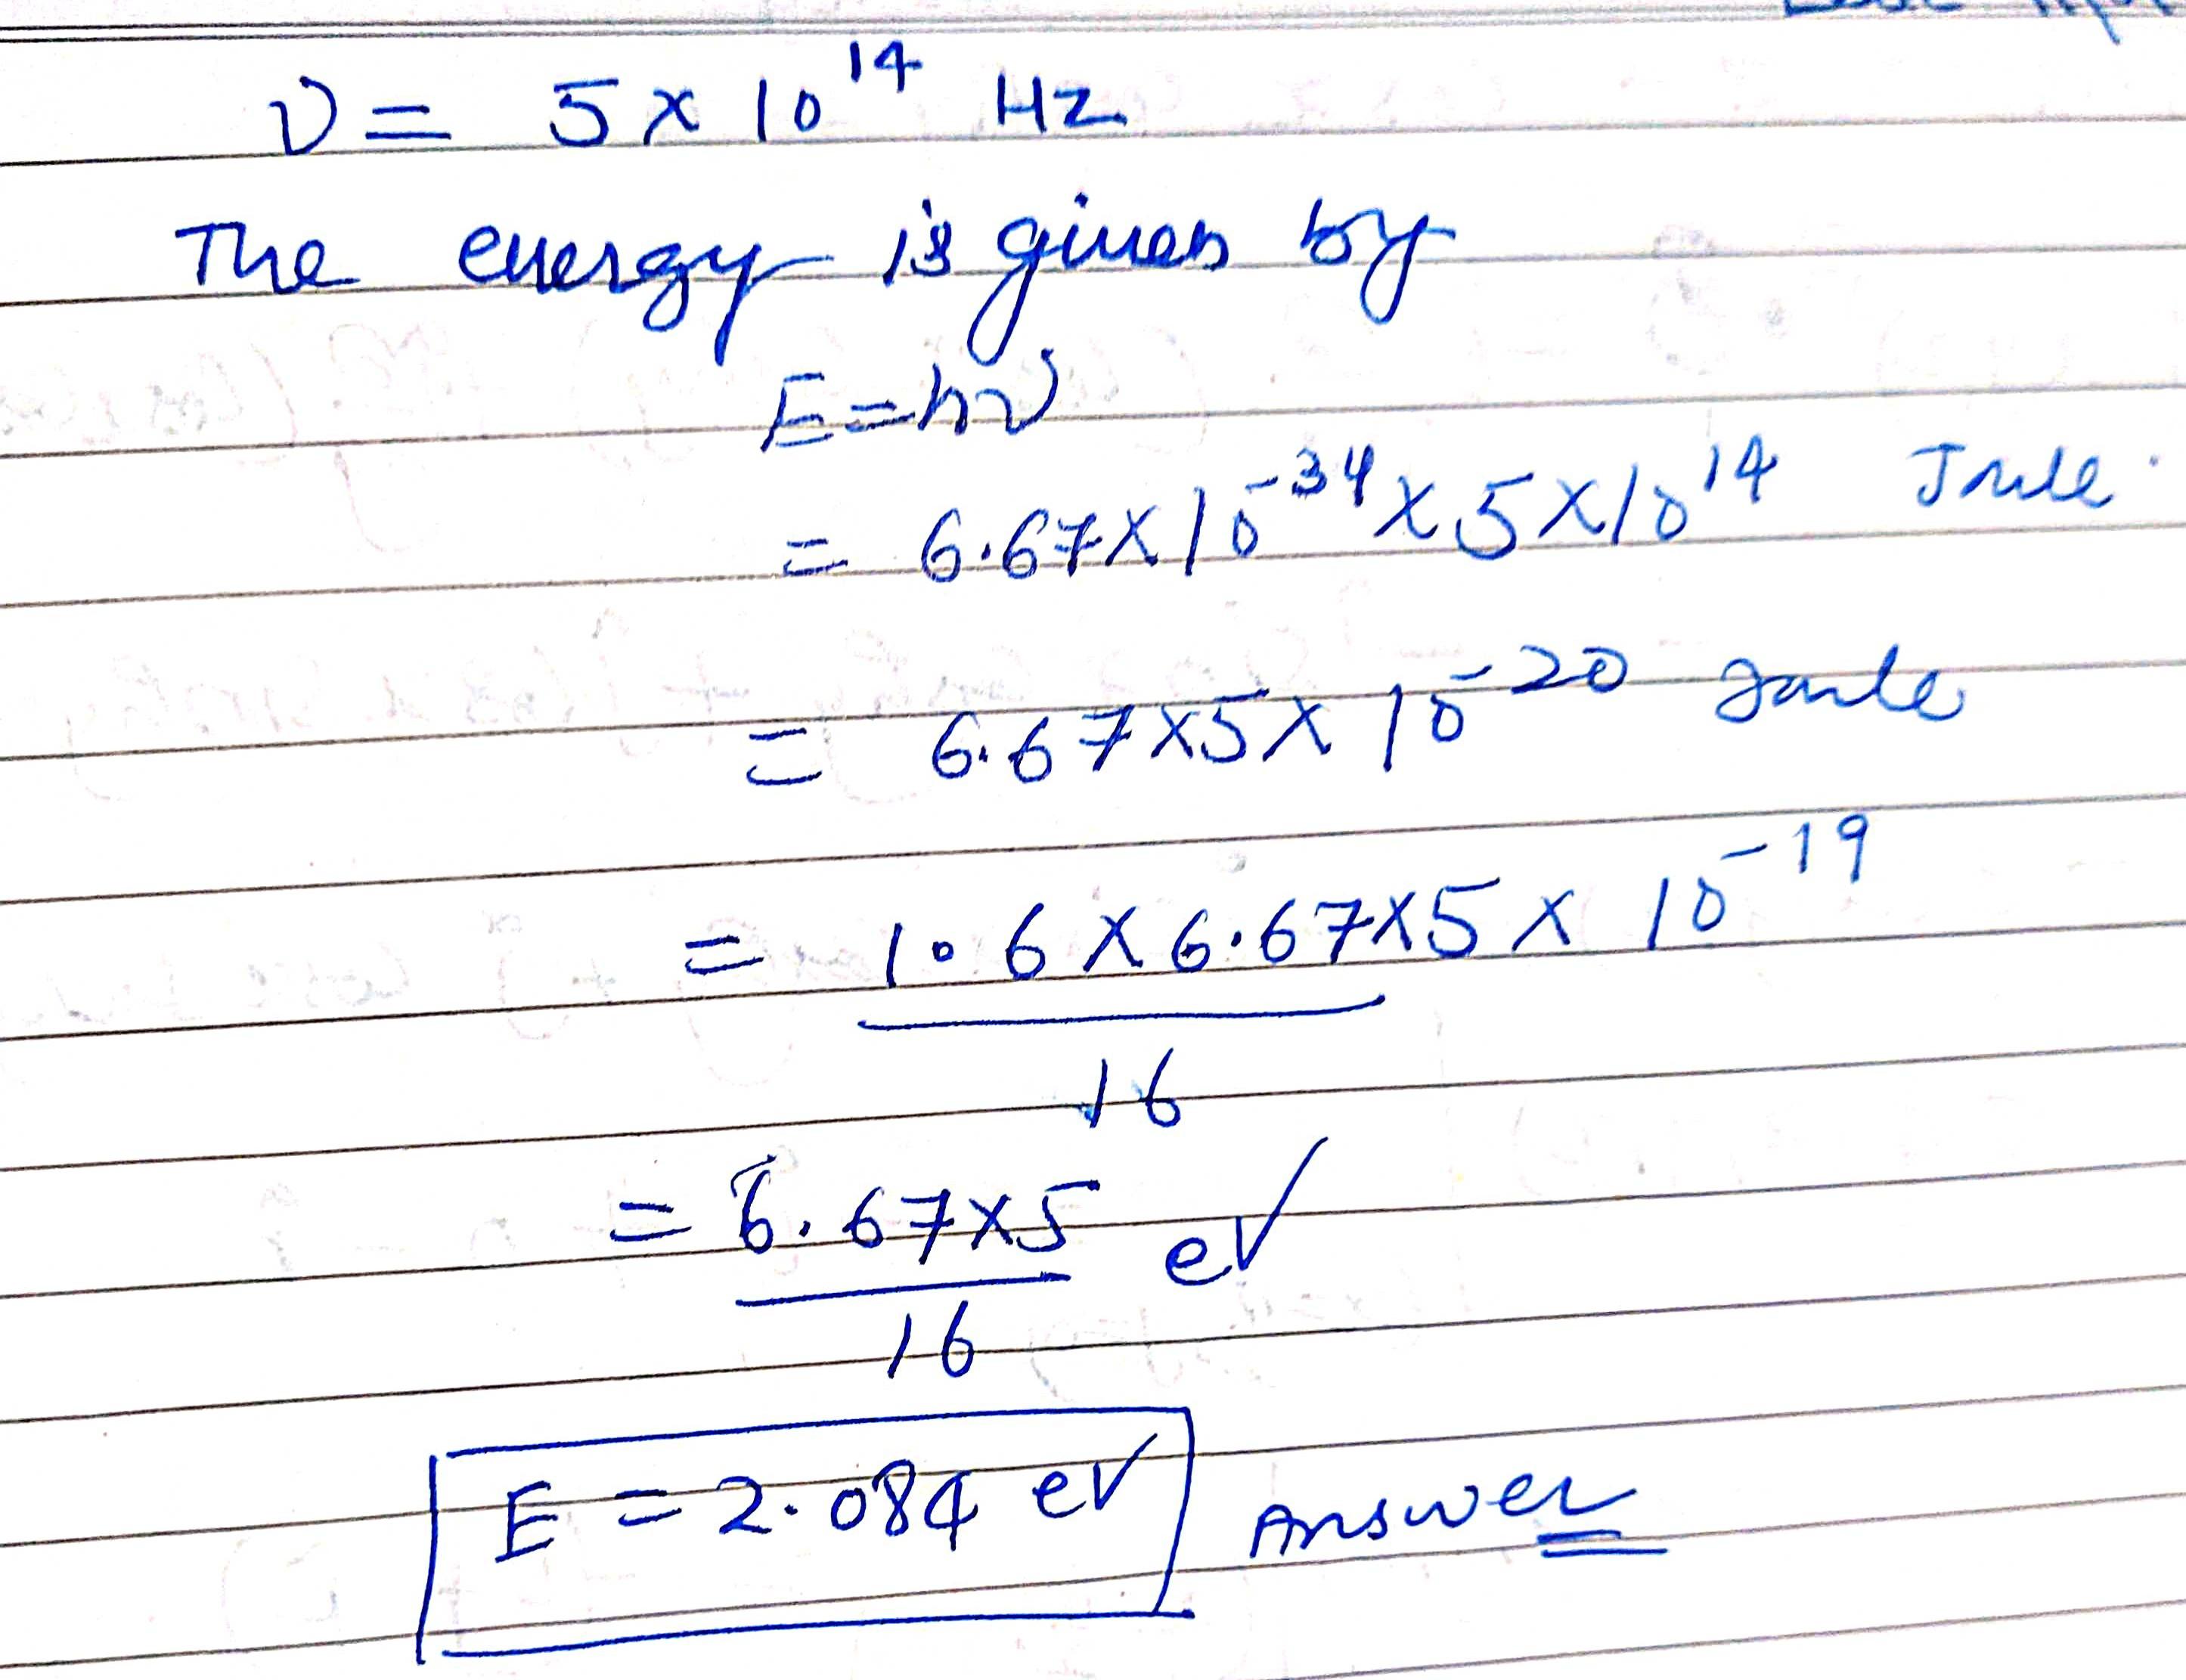 ν = 5 × 10¹⁴ Hz
The energy is given by
E = hν
= 6.67 × 10⁻³⁴ × 5 × 10¹⁴ Joule.
= 6.67 × 5 × 10⁻²⁰ Joule
= 1.6 × 6.67 × 5 × 10⁻¹⁹
16
= 6.67 × 5 eV
16
E = 2.084 eV Answer